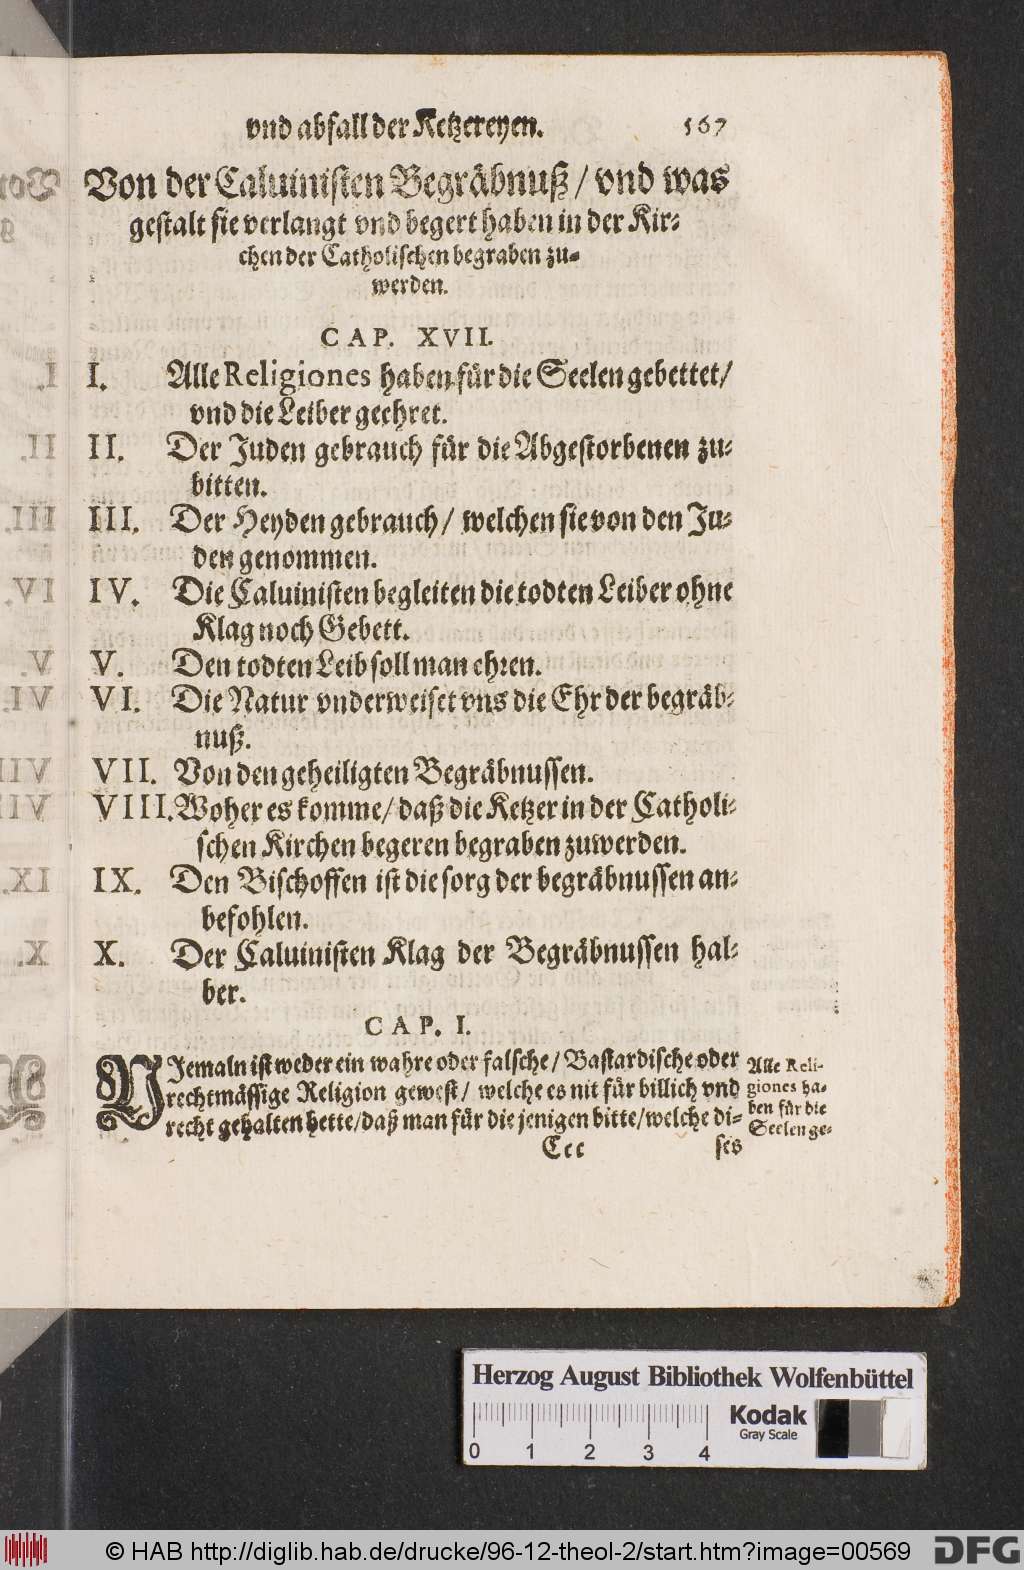 vnd abfall der Ketzereyen. 567
Von der Caluinisten Begräbnuß / vnd was
gestalt sie verlangt vnd begert haben in der Kir-
chen der Catholischen begraben zu-
werden.
CAP. XVII.
I. Alle Religiones haben für die Seelen gebettet /
vnd die Leiber geehret.
II. Der Juden gebrauch für die Abgestorbenen zu-
bitten.
III. Der Heyden gebrauch / welchen sie von den Ju-
den genommen.
IV. Die Caluinisten begleiten die todten Leiber ohne
Klag noch Gebett.
V. Den todten Leib soll man ehren.
VI. Die Natur vnderweiset vns die Ehr der begräb-
nuß.
VII. Von den geheiligten Begräbnussen.
VIII. Woher es komme / daß die Ketzer in der Catholi-
schen Kirchen begeren begraben zuwerden.
IX. Den Bischoffen ist die sorg der begräbnussen an-
befohlen.
X. Der Caluinisten Klag der Begräbnussen hal-
ber.
CAP. I.
NJemaln ist weder ein wahre oder falsche / Bastardische oder
rechtmässige Religion gewest / welche es nit für billich vnd
recht gehalten hette / daß man für die jenigen bitte / welche di-
Ccc ses
Alle Reli-
giones ha-
ben für die
Seelen ge-
Herzog August Bibliothek Wolfenbüttel
Kodak
Gray Scale
0 1 2 3 4
© HAB http://diglib.hab.de/drucke/96-12-theol-2/start.htm?image=00569
DFG